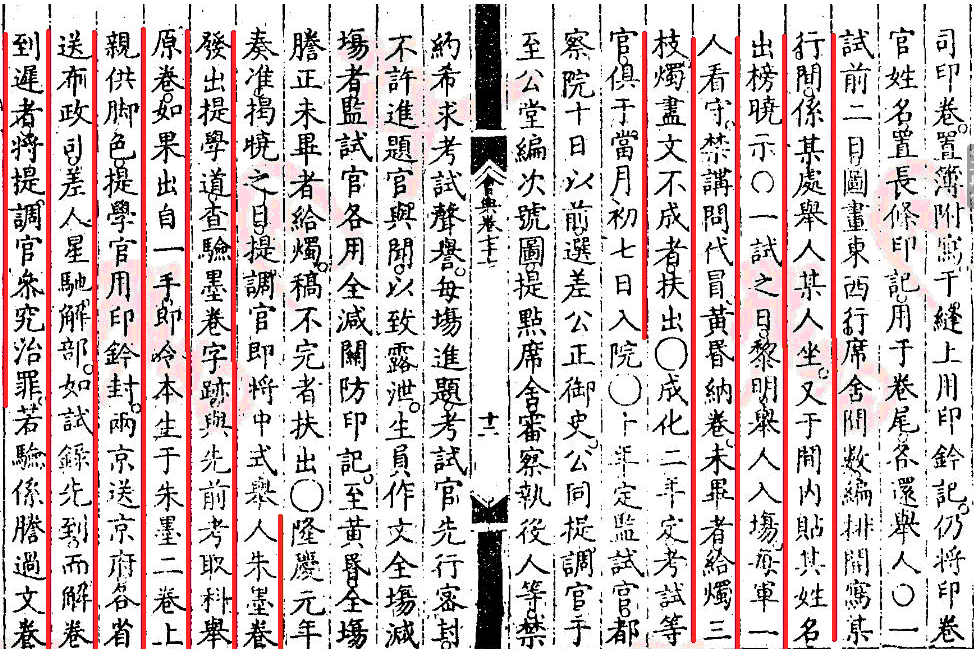 司印卷置簿附寫于縫上用印鈐記仍將印卷
官姓名置長條印記用于卷尾各還舉人〇一
試前二日圖畫東西行席舍間數編排開寫某
行間係某處舉人某人坐又于間內貼其姓名
出榜曉示〇一試之日黎明舉人入場每軍一
人看守禁講問代冒黃昏納卷未畢者給燭三
枝燭盡文不成者扶出〇成化二年定考試等
官俱于當月初七日入院〇十年定監試官都
察院十日以前選差公正御史公同提調官于
至公堂編次號圖提點席舍審察執役人等禁
會典卷
十二
約希求考試聲譽每場進題考試官先行審封
不許進題官與聞以致露泄生員作文全場減
場者監試官各用全減關防印記至黃昏全場
謄正未畢者給燭稿不完者扶出〇隆慶元年
奏准揭曉之日提調官即將中式舉人朱墨卷
發出提學道查驗墨卷字跡與先前考取科舉
原卷如果出自一手即令本生于朱墨二卷上
親供脚色提學官用印鈐封兩京送京府各省
送布政司差人星馳解部如試錄先到而解卷
到遲者將提調官叅究治罪若驗係謄過文卷